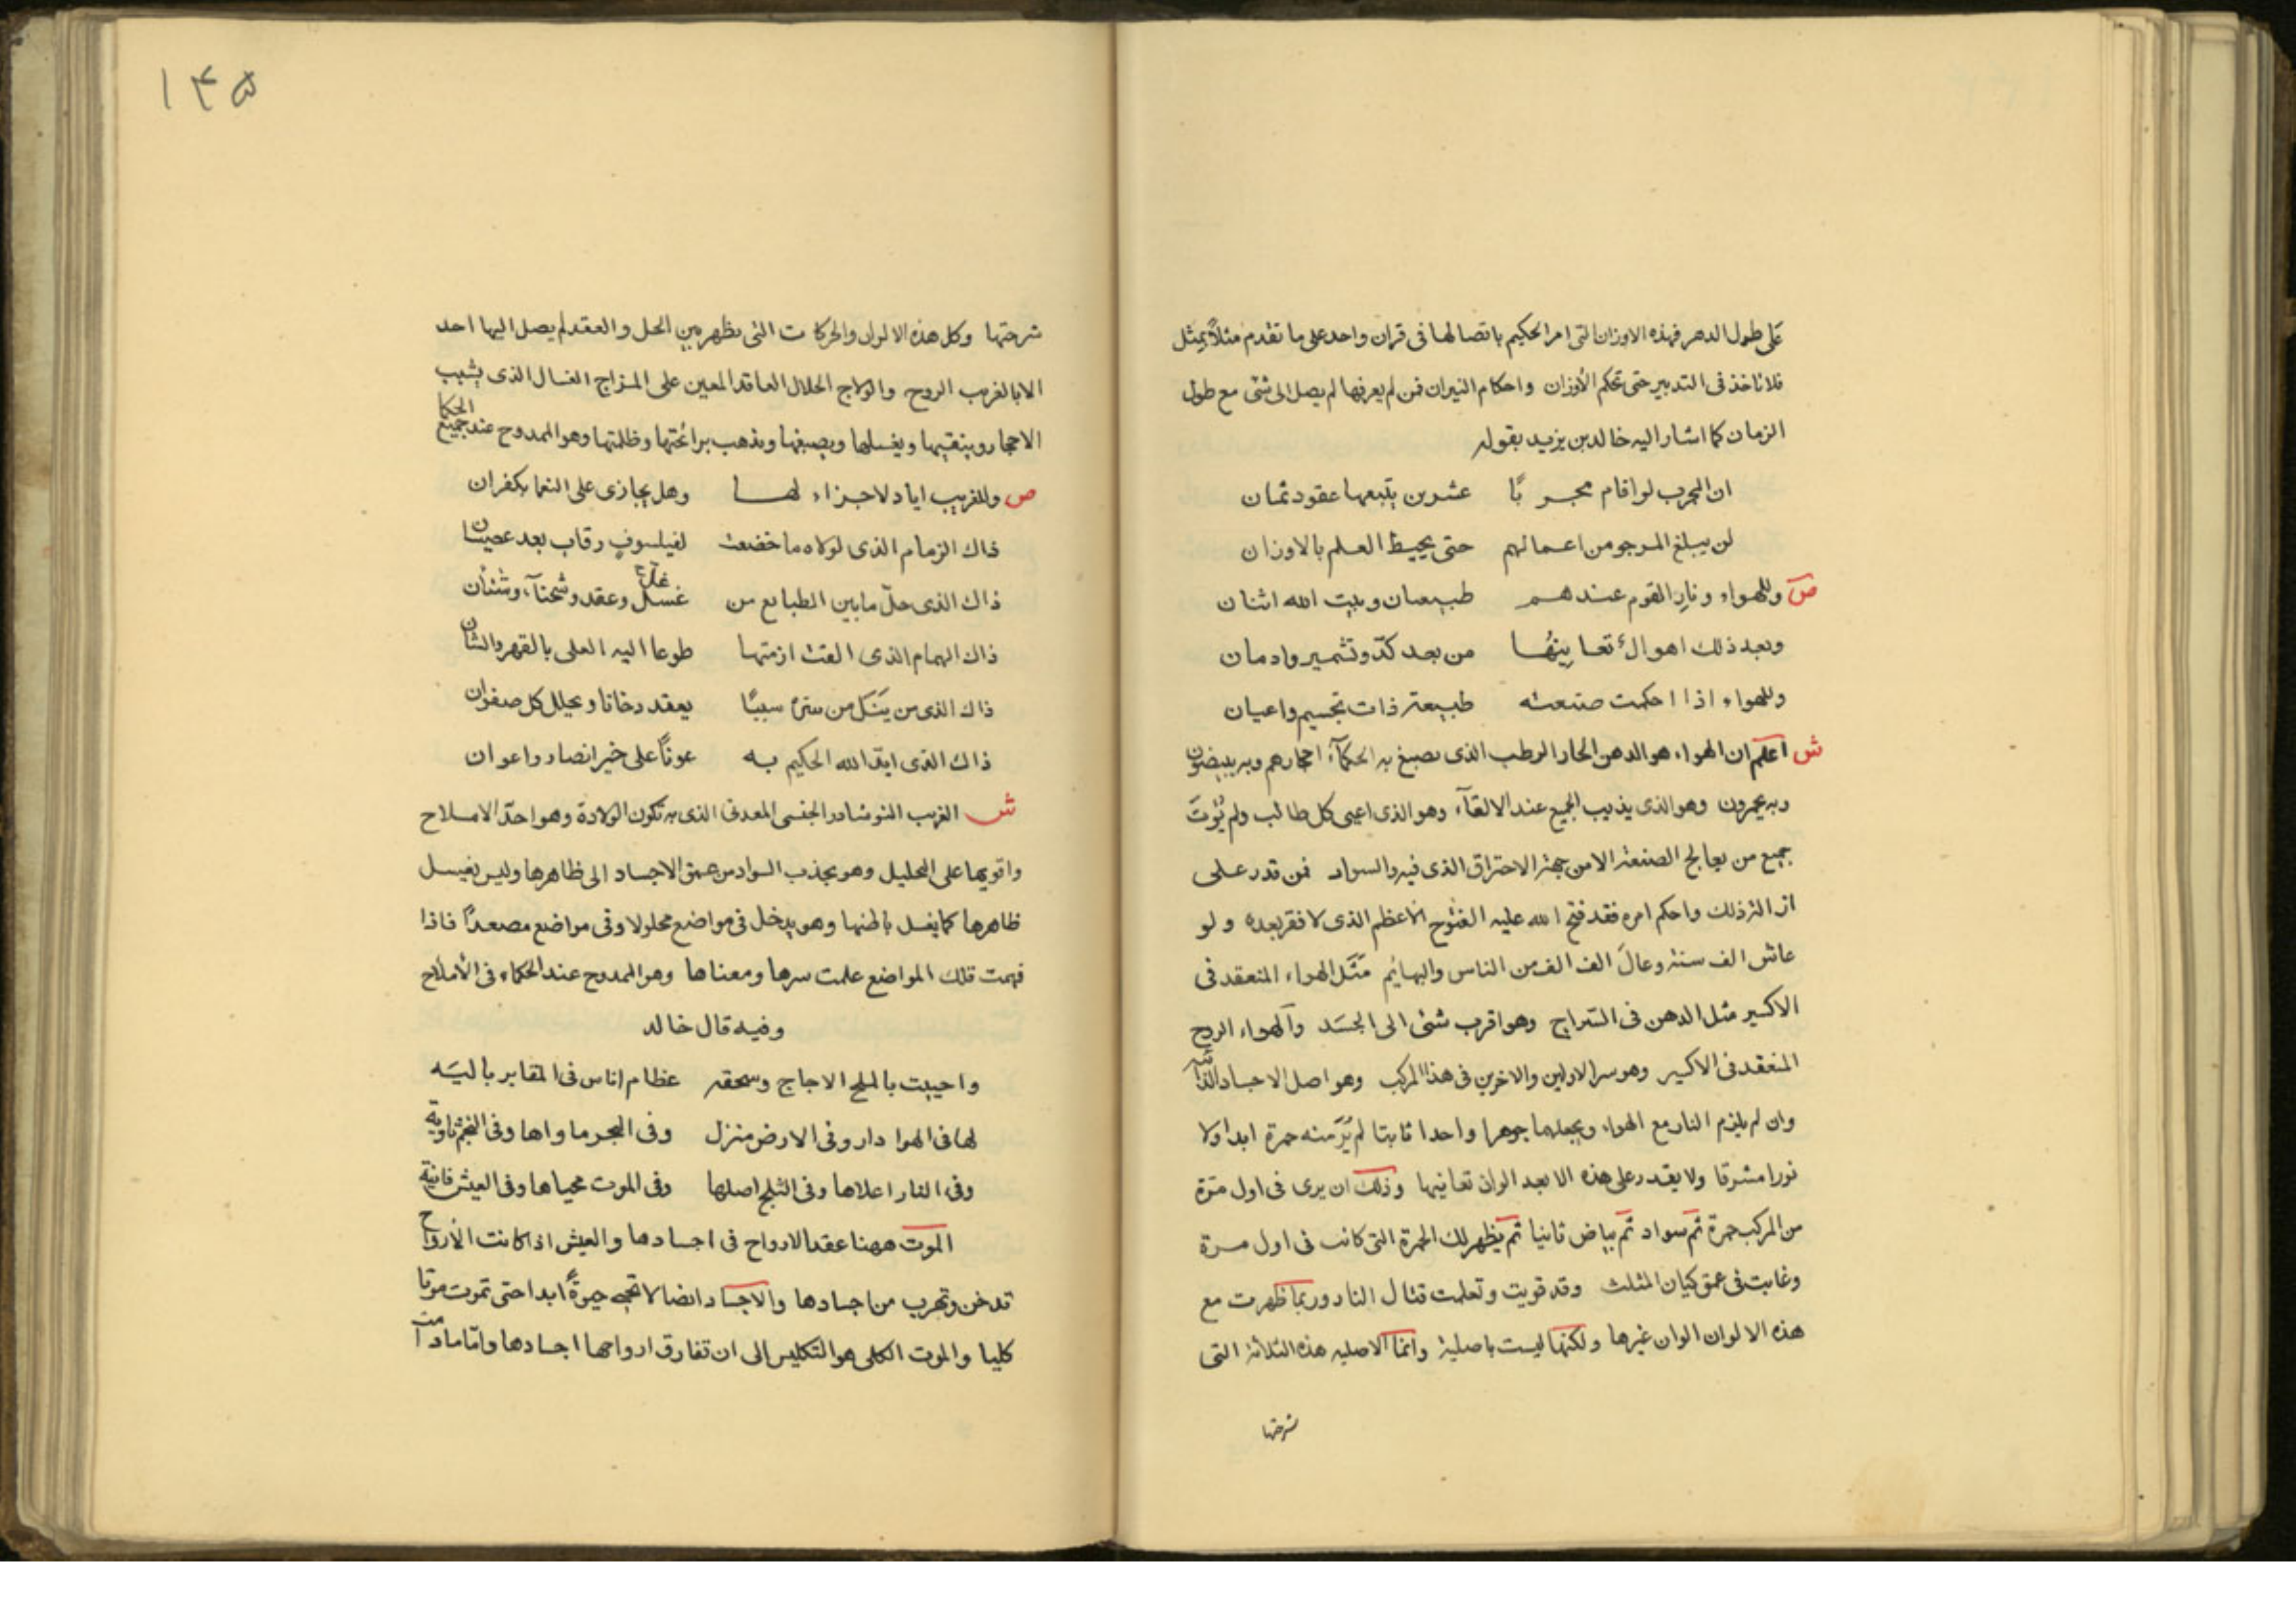 على طول الدهر فهذه الاوزان التى امر الحكيم باتصالها فى قران واحد على ما تقدم مثلاً بمثل
فلا تاخذ فى التدبير حتى تحكم الأوزان واحكام النيران فمن لم يعرفها لم يصل الى شئ مع طول
الزمان كما اشار اليه خالد بن يزيد بقوله
ان المجرب لو اقام مجربًا عشرين يتبعها عقود ثمان
لن يبلغ المرجو من اعمالهم حتى يحيط العلم بالاوزان
ص وللهواء ونارِ القوم عندهم طبيعتان وبيت الله اثنان
وبعد ذلك اهوالٌ تعاينُها من بعد كدّ وتشمير وادمان
وللهواء اذا احكمت صنعته طبيعة ذات تجسيم واعيان
ش اعلم ان الهواء هو الدهن الحار الرطب الذى يصبغ به الحكمآء احجارهم وبه يبيضون
وبه يحمرون وهو الذى يذيب الجميع عند الالقآء وهو الذى اعيى كل طالب ولم يُؤتَ
جميع من يعالج الصنعة الا من جهة الاحتراق الذى فيه والسواد فمن قدر على
ازالة ذلك واحكم امره فقد فتح الله عليه الفتوح الأعظم الذى لا فقر بعده ولو
عاش الف سنة وعالَ الف الف من الناس والبهائم مَثَل الهواء المنعقد فى
الاكسير مثل الدهن فى السّراج وهو اقرب شئ الى الجسَد والهواء الروح
المنعقد فى الاكسير وهو سر الاولين والاخرين فى هذا المركب وهو اصل الاجساد الذآئبة
وان لم يلزم النار مع الهواء ويجعلهما جوهرا واحدا ثابتا لم يُرَ منه حمرة ابدا ولا
نورا مشرقا ولا يقدر على هذه الا بعد الوان تعاينها وذلك ان يرى فى اول مرّة
من المركب حمرة ثم سواد ثم بياض ثانيا ثم يظهر لك الحمرة التى كانت فى اول مرة
وغابت فى عمق كيان المثلث وقد قويت وتعلمت قتال النار وربما ظهرت مع
هذه الالوان الوان غيرها ولكنها ليست باصلية وانما الاصليه هذه الثلاثة التى
شرحتها
١٤٥
شرحتها وكل هذه الالوان والحركات التى تظهر بين الحل والعقد لم يصل اليها احد
الا بالغريب الروح والزاج الحلال العاقد المعين على المزاج الغسال الذى يشبب
الاحجار وينقيها ويغسلها ويصبغها ويذهب برائحتها وظلمتها وهو الممدوح عند جميع الحكما
ص وللغريب اياد لا جزاء لها وهل يجازى على النعما بكفران
ذاك الزمام الذى لولاه ما خضعت لفيلسوفٍ رقاب بعد عصيان
ذاك الذى حلّ ما بين الطبايع من غسل وعقد وشحنآء وشنئان
ذاك الهمام الذى القت ازمتها طوعا اليه العلى بالقهر والشان
ذاك الذى من يَنَل من سرّه سببًا يعقد دخانا ويحلل كل صفوان
ذاك الذى ايّد الله الحكيم به عونًا على خير انصار واعوان
ش الغريب النوشادر الجنسى المعدنى الذى به تكون الولادة وهو احدّ الاملاح
واقويها على التحليل وهو يجذب السواد من عمق الاجساد الى ظاهرها وليس يغسل
ظاهرها كما يغسل باطنها وهو يدخل فى مواضع محلولا وفى مواضع مصعدًا فاذا
فهمت تلك المواضع علمت سرها ومعناها وهو الممدوح عند الحكماء فى الأملاح
وفيه قال خالد
واحييت بالملح الاجاج وسحقه عظام اناس فى المقابر باليَه
لها فى الهوا دار وفى الارض منزل وفى البحر ماواها وفى النجم ثاوية
وفى النار اعلاها وفى الثلج اصلها وفى الموت محياها وفى العيش فانية
الموت ههنا عقد الارواح فى اجسادها والعيش اذا كانت الأرواح
تدخن وتهرب من اجسادها والاجساد ايضا لا تحيى حيوةً ابدا حتى تموت موتا
كليا والموت الكلى هو التكليس الى ان تفارق ارواحها اجسادها وامّا ما دامت